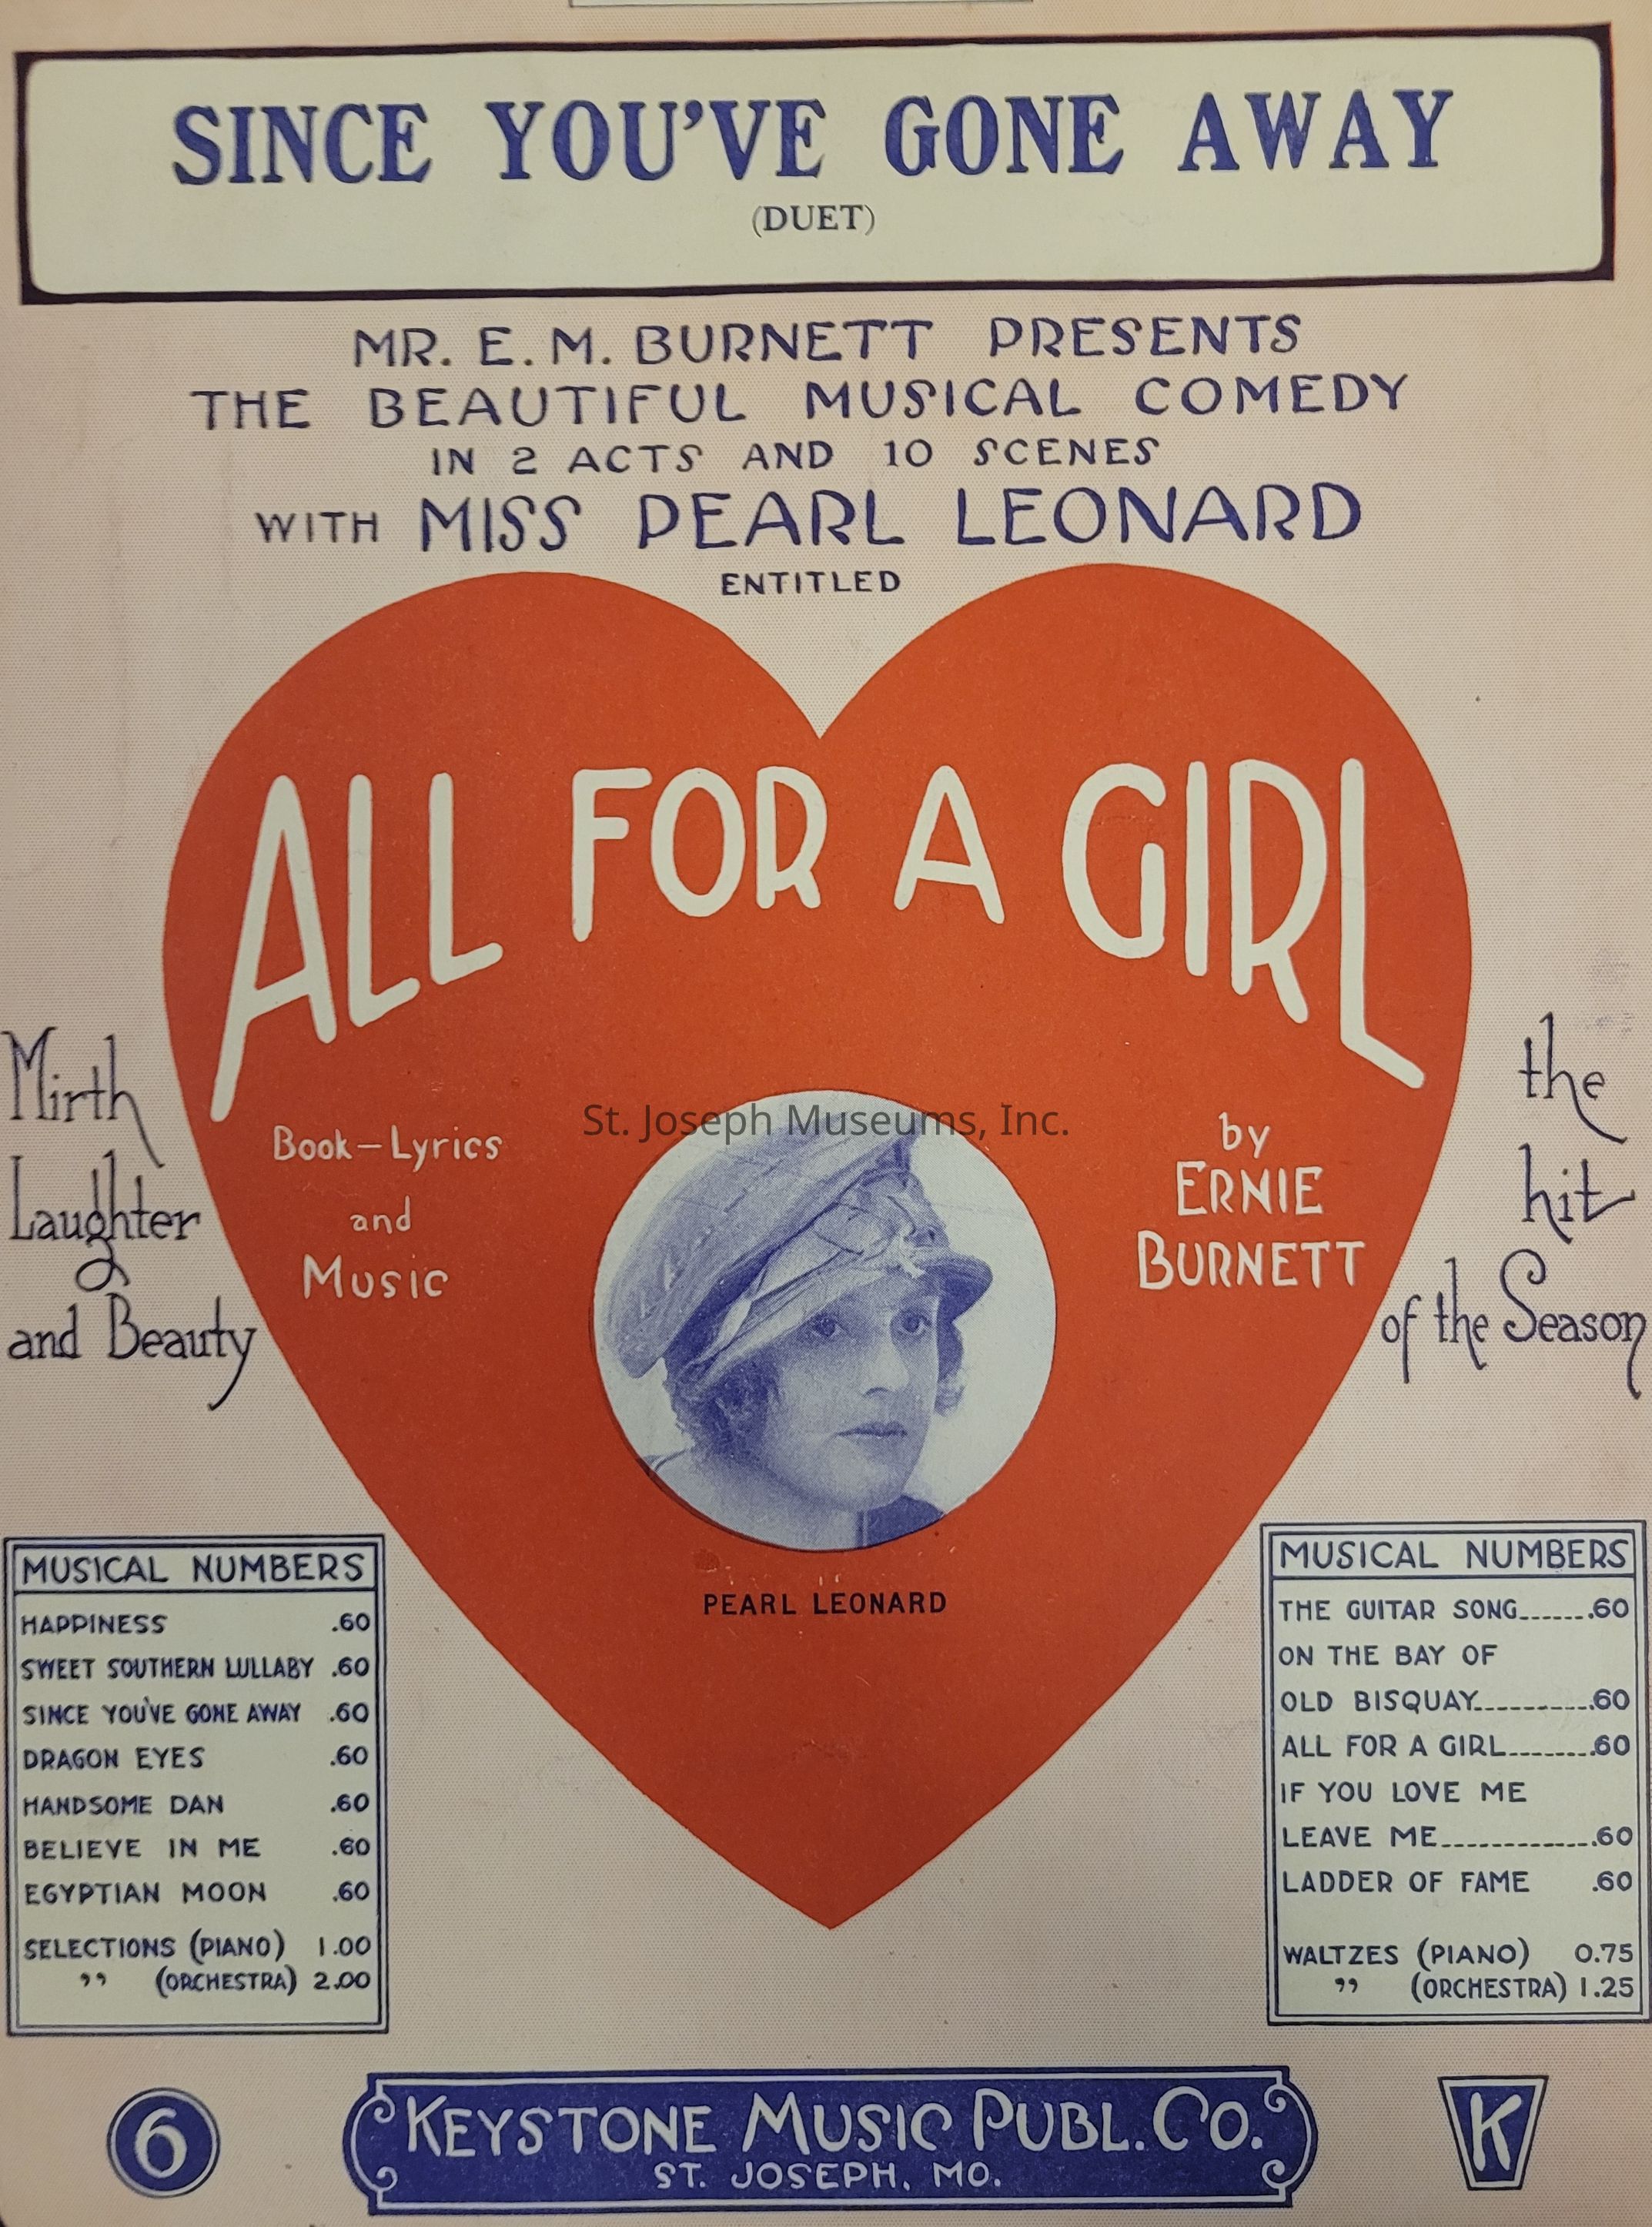 SINCE YOU'VE GONE AWAY
(DUET)
MR. E. M. BURNETT PRESENTS
THE BEAUTIFUL MUSICAL COMEDY
IN 2 ACTS AND 10 SCENES
WITH MISS PEARL LEONARD
ENTITLED
ALL FOR A GIRL
Mirth
Laughter
and Beauty
Book-Lyrics
and
Music
St. Joseph Museums, Inc.
by
ERNIE
BURNETT
the
hit
of the Season
PEARL LEONARD
MUSICAL NUMBERS
HAPPINESS .60
SWEET SOUTHERN LULLABY .60
SINCE YOU'VE GONE AWAY .60
DRAGON EYES .60
HANDSOME DAN .60
BELIEVE IN ME .60
EGYPTIAN MOON .60
SELECTIONS (PIANO) 1.00
" (ORCHESTRA) 2.00
MUSICAL NUMBERS
THE GUITAR SONG......60
ON THE BAY OF
OLD BISQUAY..........60
ALL FOR A GIRL........60
IF YOU LOVE ME
LEAVE ME.............60
LADDER OF FAME .60
WALTZES (PIANO) 0.75
" (ORCHESTRA) 1.25
6
KEYSTONE MUSIC PUBL. CO.
ST. JOSEPH, MO.
K